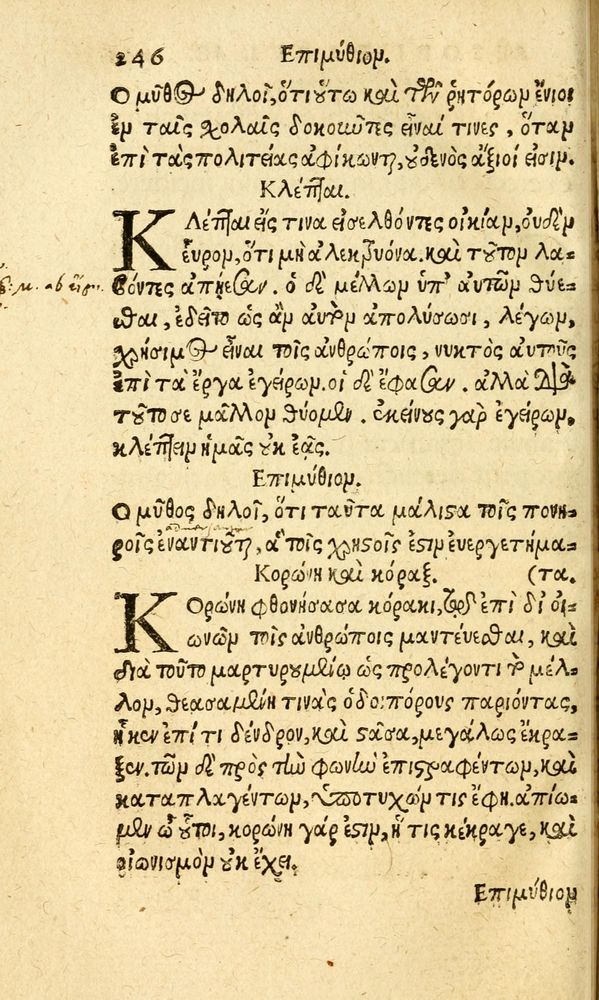 246 Επιμύθιομ.
Ο μῦθος δηλοῖ, ὅτι ὅυτω καὶ τῶν ῥητόρωμ ἔνιοι
ἐμ ταῖς χολαῖς δοκοιῶτες εἶναί τινες, ὅταμ
ἐπὶ τὰς πολιτείας ἀφίκωνται, ὀυδενὸς ἄξιοί εἰσιμ.
Κλέπται.
ΚΛέπται εἴς τινα εἰσελθόντες οἰκίαμ, ουδὲμ
ἕυρομ, ὅτι μὴ ἀλεκτρυόνα. καὶ τοῦτομ λα-
βόντες ἀπῄεσαν. ὁ δὲ μέλλωμ ὑπ' αυτῶμ θύε-
σθαι, ἐδεῖτο ὡς ἂμ αυτὸμ ἀπολύσωσι, λέγωμ,
χρήσιμος εἶναι τοῖς ἀνθρώποις, νυκτὸς αυτοὺς
ἐπὶ τὰ ἔργα ἐγείρωμ. οἱ δὲ ἔφασαν. ἀλλὰ διὰ
τοῦτο σε μᾶλλομ θύομεν. ἐκείνους γὰρ ἐγείρωμ,
κλέπτειμ ἡμᾶς ουκ ἐᾷς.
Επιμύθιομ.
Ο μῦθος δηλοῖ, ὅτι ταῦτα μάλιστα τοῖς πονη-
ροῖς ἐναντιοῦται, ἃ τοῖς χρηστοῖς ἐστιμ ἐυεργετήμα-
Κορώνη καὶ κόραξ. (τα.
ΚΟρώνη φθονήσασα κόρακι, ἐπὶ δι' οἰ-
ωνῶμ τοῖς ἀνθρώποις μαντέυεσθαι, καὶ
διὰ τοῦτο μαρτυρουμένῳ ὡς προλέγοντι τὸ μέλ-
λομ, θεασαμένη τινὰς ὁδοιπόρους παριόντας,
ἧκεν ἐπί τι δένδρον, καὶ στᾶσα, μεγάλως ἔκρα-
ξεν. τῶμ δὲ πρὸς τὴν φωνὴν ἐπιστραφέντωμ, καὶ
καταπλαγέντωμ, ὑποτυχώμ τις ἔφη. ἀπίω-
μεν ὦ οὗτοι, κορώνη γάρ ἐστιμ, ἥ τις κέκραγε, καὶ
οἰωνισμὸμ ουκ ἔχει.
Επιμύθιομ